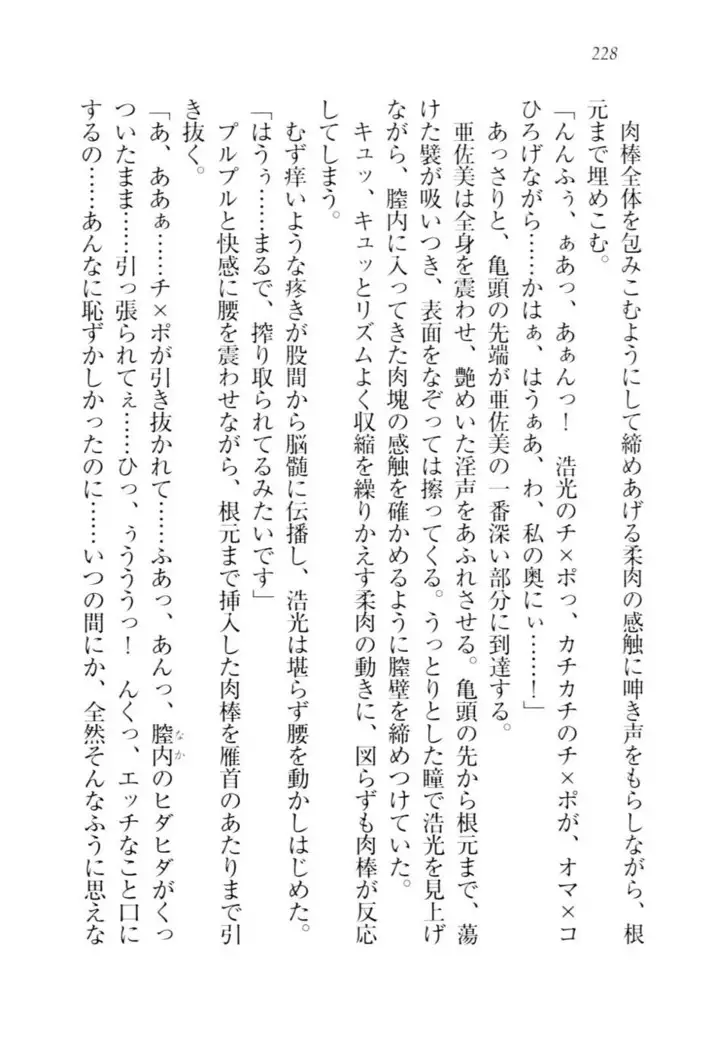 228
肉棒全体を包みこむようにして締めあげる柔肉の感触に呻き声をもらしながら、根
元まで埋めこむ。
「んんふぅ、ぁあっ、あぁんっ！　浩光のチ×ポっ、カチカチのチ×ポが、オマ×コ
ひろげながら……かはぁ、はうぁあ、わ、私の奥にぃ……！」
あっさりと、亀頭の先端が亜佐美の一番深い部分に到達する。
亜佐美は全身を震わせ、艶めいた淫声をあふれさせる。亀頭の先から根元まで、蕩
けた襞が吸いつき、表面をなぞっては擦ってくる。うっとりとした瞳で浩光を見上げ
ながら、膣内に入ってきた肉塊の感触を確かめるように膣壁を締めつけていた。
キュッ、キュッとリズムよく収縮を繰りかえす柔肉の動きに、図らずも肉棒が反応
してしまう。
むず痒いような疼きが股間から脳髄に伝播し、浩光は堪らず腰を動かしはじめた。
「はうぅ……まるで、搾り取られてるみたいです」
プルプルと快感に腰を震わせながら、根元まで挿入した肉棒を雁首のあたりまで引
き抜く。
「あ、ああぁ……チ×ポが引き抜かれて……ふあっ、あんっ、膣内のヒダヒダがくっ
なか
ついたまま……引っ張られてぇ……ひっ、ぅうううっ！　んくっ、エッチなこと口に
するの……あんなに恥ずかしかったのに……いつの間にか、全然そんなふうに思えな